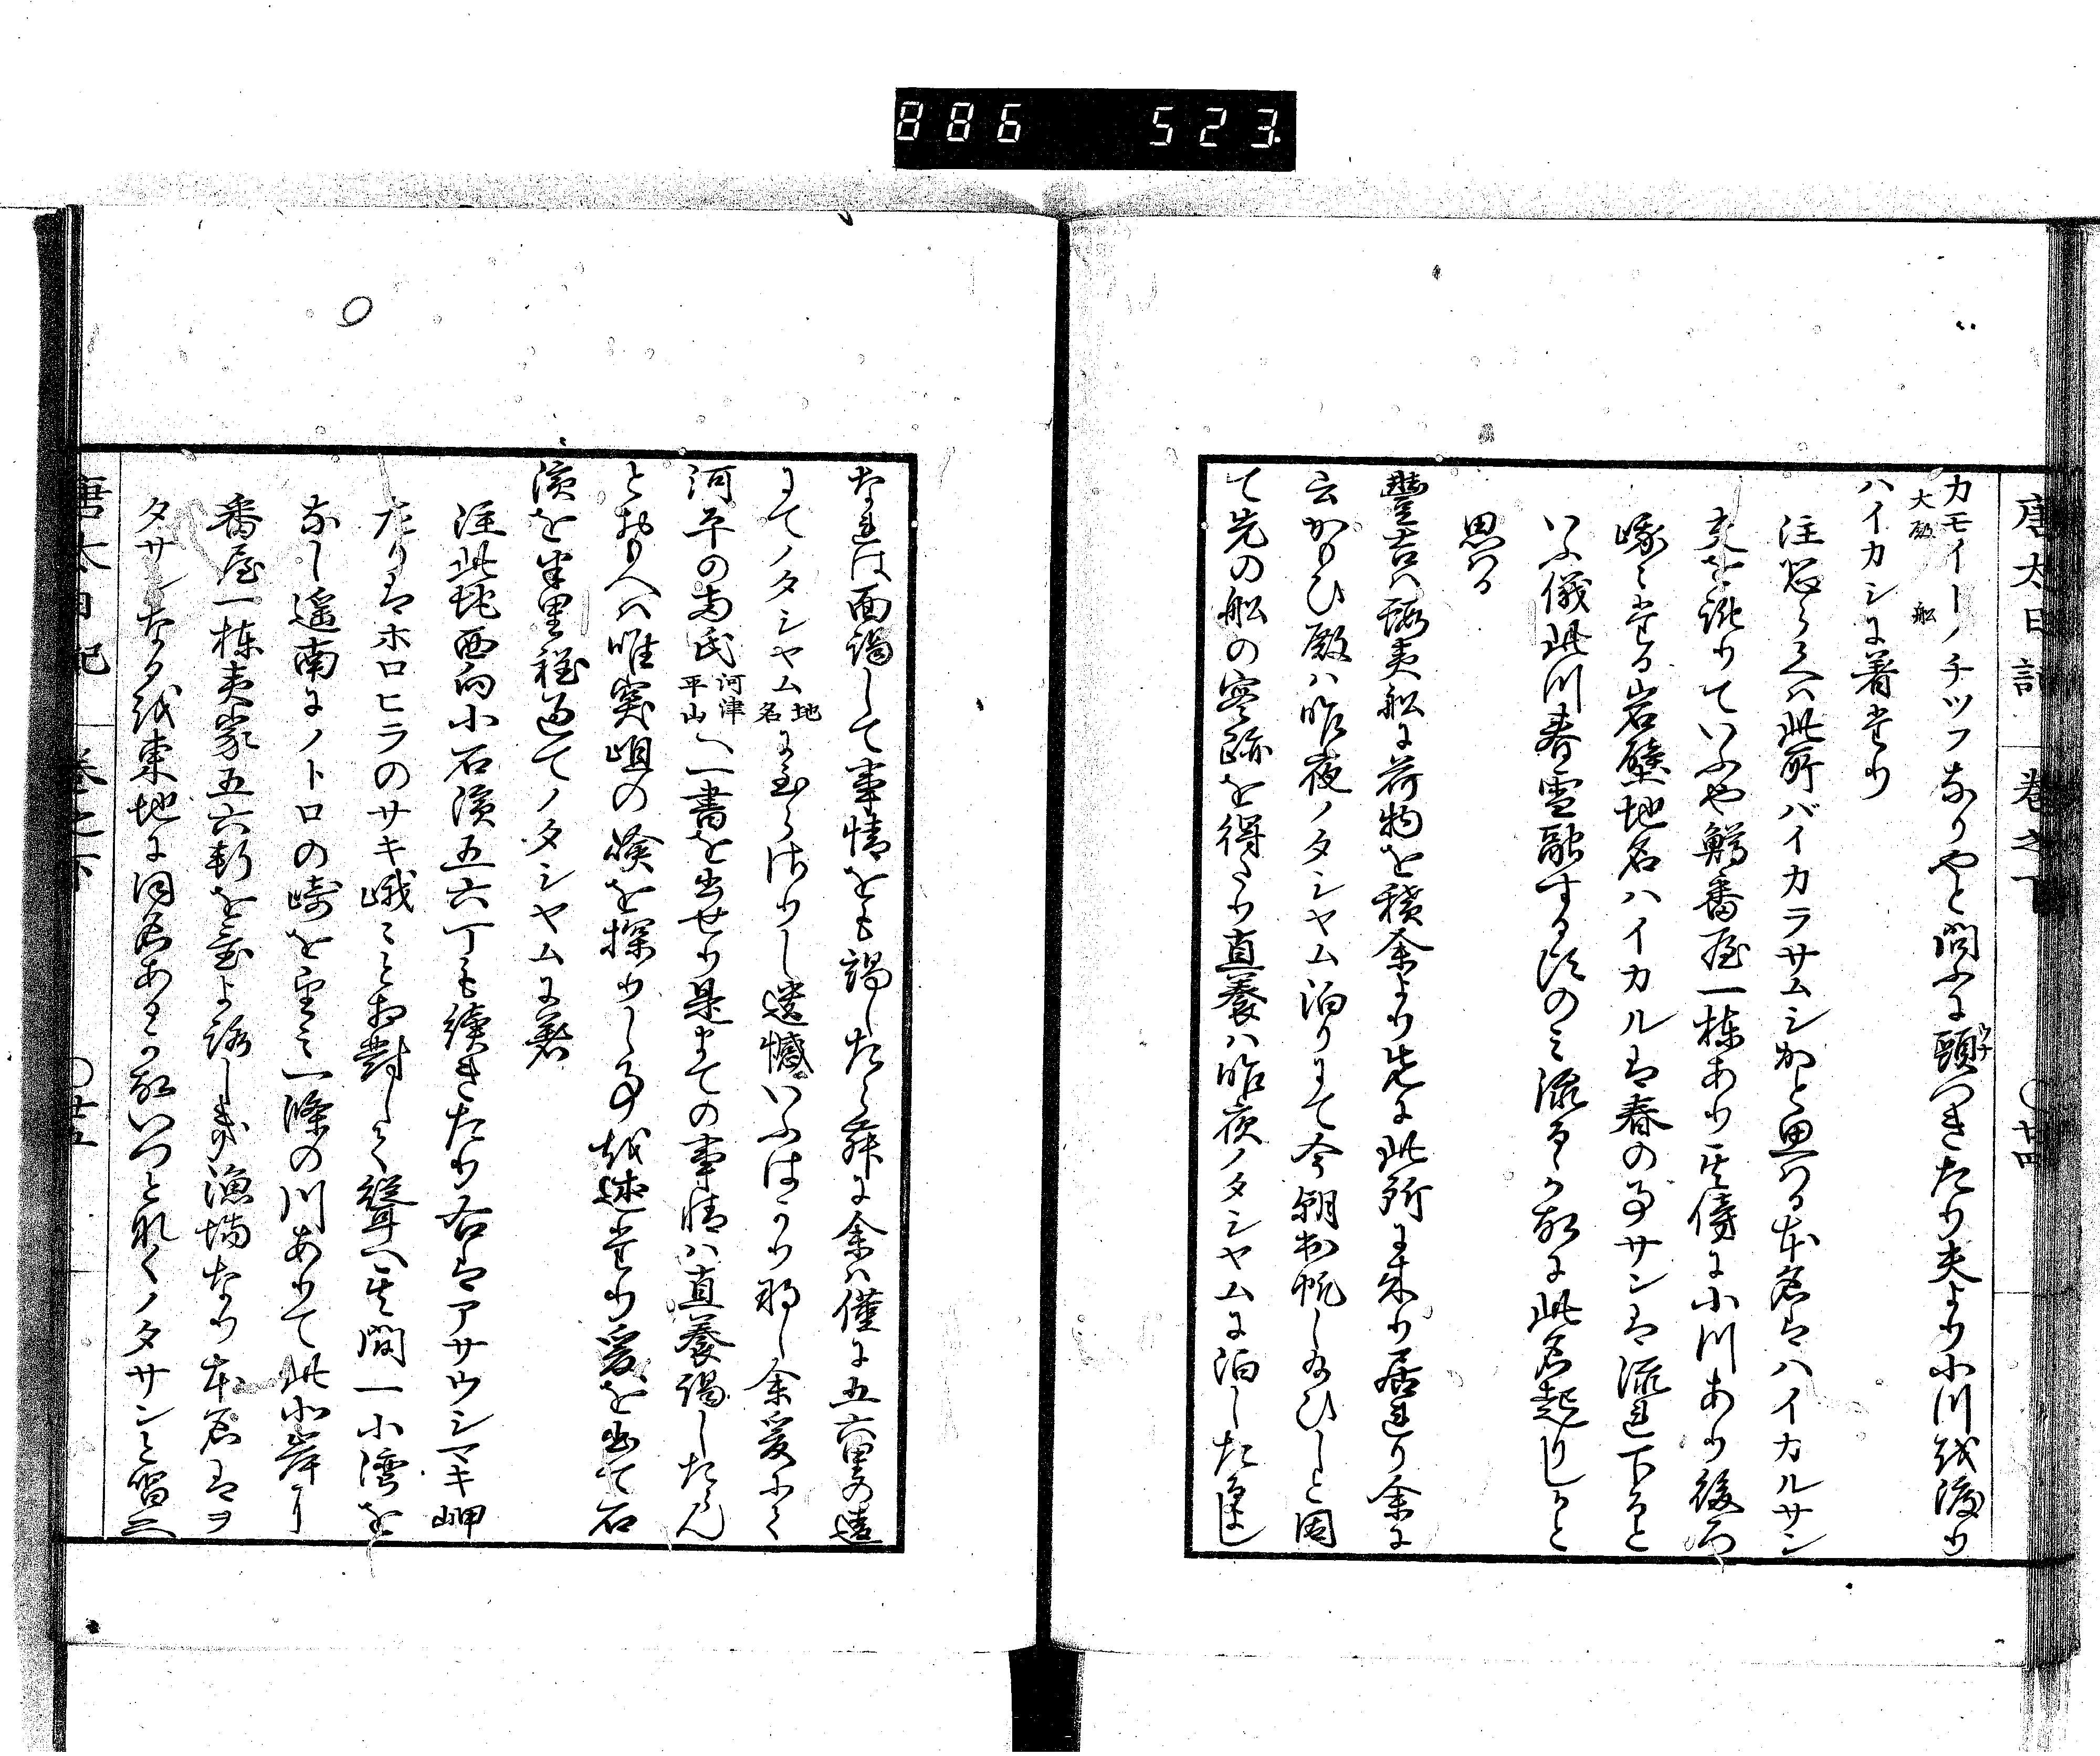 886 523.
唐太日記 巻之下 〇廿四
カモイーノチツフなりやと問ふに頭つきたり夫より小川を渡り
ウナ
大殿 船
ハイカシに着せり
注 恐らくハ此所バイカラサムシかと思はる本名はハイカルサン
也を訛りていふや鱒番屋一棟あり其傍に小川あり後ろ
峨々たる岩壁地名ハイカルは春の事サンは流れ下ると
いふ儀此川春雪融する頃のミ流るゝ故に此名起りしと
思はる
豊吉ハ夷船に荷物を積余より先に此所に来り居れり余に
云 殿ハ昨夜ノタシヤム泊りにて今朝出帆し給ひしと因
て先の船の 跡を得たり直養ハ昨夜ノタシヤムに泊したるよし
なれは面謁して事情をも謁したく 余は僅に五六里の違
にてノタシヤム地名に至らさりし遺憾いふはかり那し余爰にて
河平の両氏河津平山へ一書を出せり是まての事情ハ直養謁したらん
とおもへハ唯突岨の険を探りし事を述たり爰を出て石
濱を半里程過てノタシヤムに着
注此地西向小石濱五六丁も續きたり右はアサウシマキ岬
左りはホロヒラのサキ峨ミと相對して聳へ其間一小湾を
なし遥南にノトロの崎を望ミ一條の川ありて此北岸に
番屋一棟夷家五六軒を 漁場なり本名はヲ
タサンなるを東地に同名あるか故いつと那くノタサンと唱ふ
唐太日記 巻之下 〇廿五